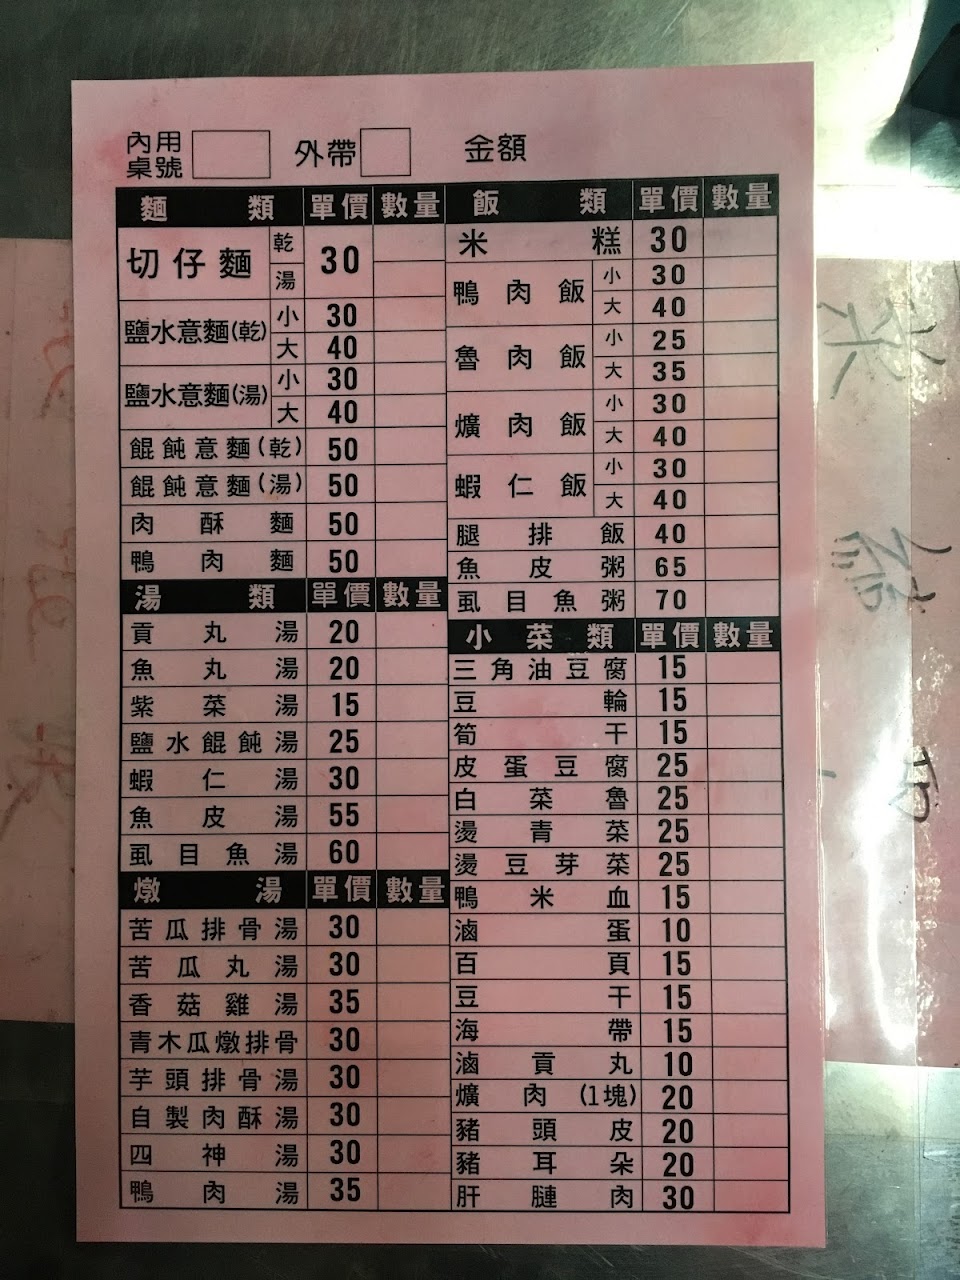 內用桌號 外帶 金額
麵類 單價 數量
切仔麵 乾 30
湯
鹽水意麵(乾) 小 30
大 40
鹽水意麵(湯) 小 30
大 40
餛飩意麵(乾) 50
餛飩意麵(湯) 50
肉酥麵 50
鴨肉麵 50
湯類 單價 數量
貢丸湯 20
魚丸湯 20
紫菜湯 15
鹽水餛飩湯 25
蝦仁湯 30
魚皮湯 55
虱目魚湯 60
燉湯 單價 數量
苦瓜排骨湯 30
苦瓜丸湯 30
香菇雞湯 35
青木瓜燉排骨 30
芋頭排骨湯 30
自製肉酥湯 30
四神湯 30
鴨肉湯 35
飯類 單價 數量
米糕 30
鴨肉飯 小 30
大 40
魯肉飯 小 25
大 35
爌肉飯 小 30
大 40
蝦仁飯 小 30
大 40
腿排飯 40
魚皮粥 65
虱目魚粥 70
小菜類 單價 數量
三角油豆腐 15
豆輪 15
筍干 15
皮蛋豆腐 25
白菜魯 25
燙青菜 25
燙豆芽菜 25
鴨米血 15
滷蛋 10
百頁 15
豆干 15
海帶 15
滷貢丸 10
爌肉(1塊) 20
豬頭皮 20
豬耳朵 20
肝腱肉 30